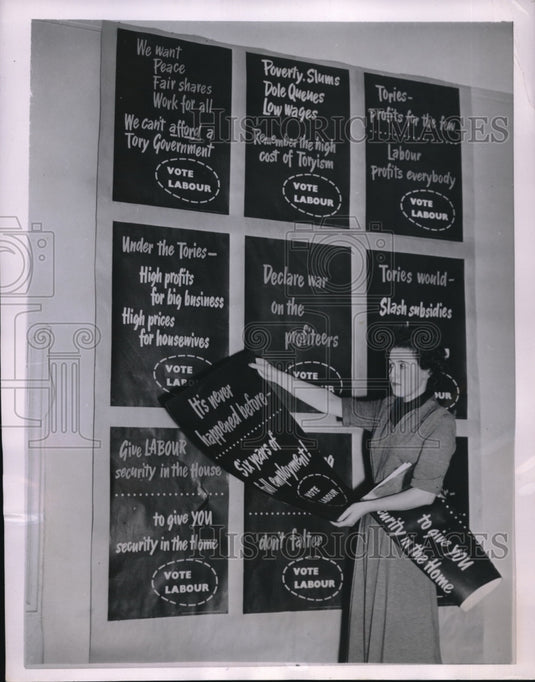 We want
Peace
Fair shares
Work for all
We can't afford a
Tory Government
VOTE
LABOUR
Poverty. Slums
Dole Queues
Low wages
Remember the high
cost of Toryism
VOTE
LABOUR
Tories–
profits for the few
Labour
profits everybody
VOTE
LABOUR
HISTORIC IMAGES
Under the Tories–
High profits
for big business
High prices
for housewives
VOTE
LABOUR
Declare war
on the
profiteers
VOTE
LABOUR
Tories would–
Slash subsidies
It's never
happened before–
Six years of
employment!
VOTE
LABOUR
Give LABOUR
security in the House
to give YOU
security in the Home
VOTE
LABOUR
don't falter
VOTE
LABOUR
to give YOU
security in the Home
HISTORIC IMAGES